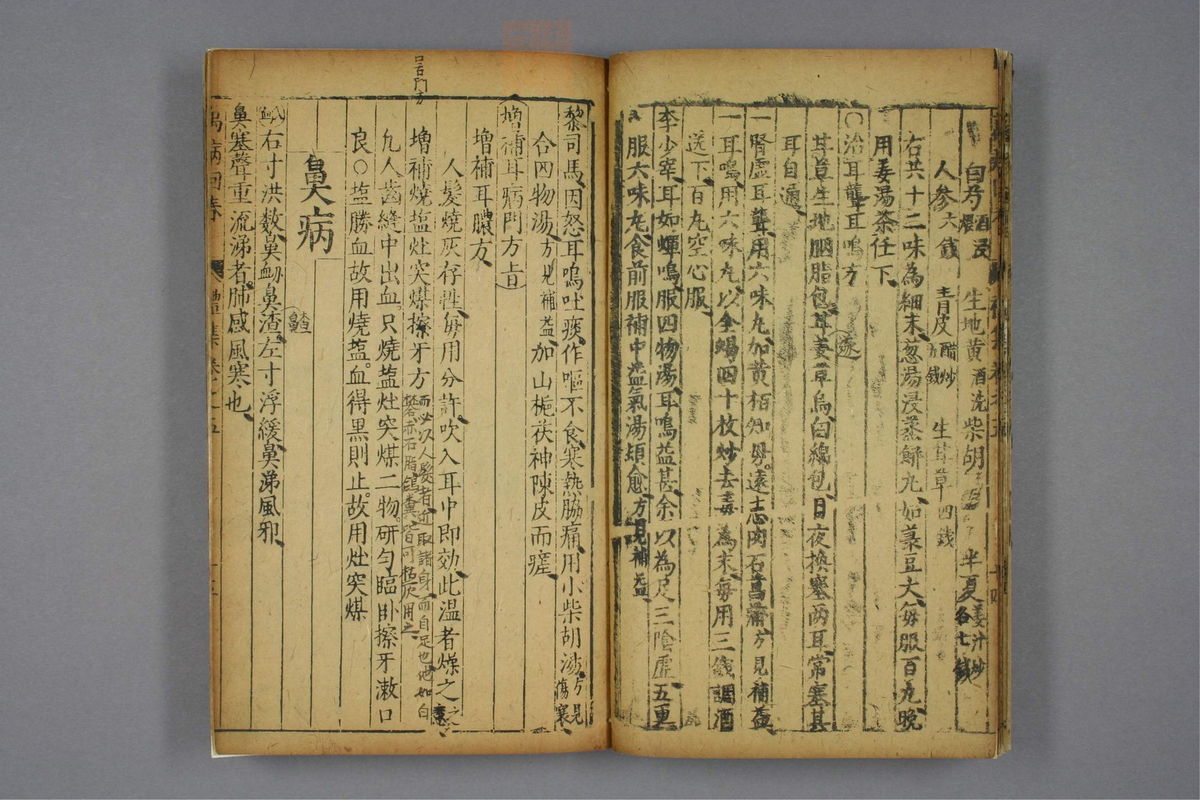 白芍酒浸 生地黄酒洗 柴胡 半夏姜汁炒各七錢
人參六錢 青皮醋炒 生甘草四錢
右共十二味為細末葱湯浸蒸餅丸如菉豆大每服百丸晚
用姜湯茶任下
○治耳聾耳鳴方
甘草生地胭脂包甘遂草烏白綿包日夜換塞两耳常塞甚
耳自通
遂
一腎虚耳聾用六味丸加黄栢知母遠志肉石菖蒲方見補益
一耳鳴用六味丸以全蝎四十枚炒去毒為末每用三錢調酒
送下百丸空心服
李少宰耳如蟬鳴服四物湯耳鳴益甚余以為足三陰虚五更
服六味丸食前服補中益氣湯頓愈方見補益
黎司馬因怒耳鳴吐痰作嘔不食寒熱脇痛用小柴胡湯方見傷寒
合四物湯方見補益加山梔茯神陳皮而瘥
增補耳病門方旨
增補耳膿方
人髮燒灰存性每用分許吹入耳中即効此温者燥之之意
而必以人髮者近取諸身而自足也他如白礬赤石脂鷄糞皆可燒灰用之
增補燒塩灶突煤擦牙方
凢人齒縫中出血只燒塩灶突煤二物研匀臨卧擦牙漱口
良○塩勝血故用燒塩血得黒則止故用灶突煤
鼻病
右寸洪数鼻衄鼻渣左寸浮緩鼻涕風邪
鼻塞聲重流涕者肺感風寒也
病回春
豊集 卷之五